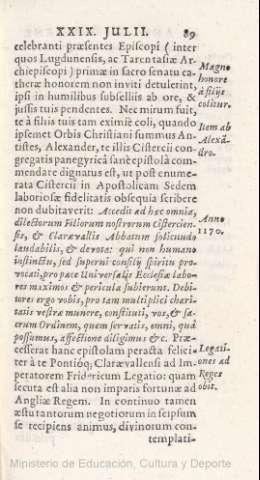 XXIX. JULII. 89
celebranti præsentes Episcopi (inter
quos Lugdunensis, ac Tarentasiæ Ar-
chiepiscopi) primæ in sacro senatu ca-
theræ honorem non inviti detulerint,
ipsi in humilibus subselliis ab ore, &
jussis tuis pendentes. Nec mirum fuit,
te à filiis tuis tam eximiè coli, quando
ipsemet Orbis Christiani summus An-
tistes, Alexander, te illis Cistercii con-
gregatis panegyricâ sanè epistolâ com-
mendare dignatus est, ut post enume-
rata Cistercii in Apostolicam Sedem
laboriosæ fidelitatis obsequia scribere
non dubitaverit: Accedit ad hæc omnia,
dilectorum Filiorum nostrorum Cistercien-
sis, & Claravallis Abbatum solicitudo
laudabilis, & devota: qui non humano
instinctu, sed superni consilij spiritu pro-
vocati, pro pace Universalis Ecclesiæ labo-
res maximos & pericula subierunt. Debi-
tores ergo vobis, pro tam multiplici chari-
tatis vestræ munere, constituti, vos, & sa-
crum Ordinem, quem servatis, omni, quâ
possumus, affectione diligimus &c. Præ-
cesserat hanc epistolam peracta felici-
ter à te Pontióq; Claravallensi ad Im-
peratorem Fridericum Legatio: quam
secuta est alia non imparis fortunæ ad
Angliæ Regem. In continuo tamen
æstu tantorum negotiorum in seipsum
se recipiens animus, divinorum con-
templati-
Magno
honore
à filijs
colitur.
Item ab
Alexā-
dro.
Anno
1170.
Legati-
ones ad
Reges
obit.
Ministerio de Educación, Cultura y Deporte